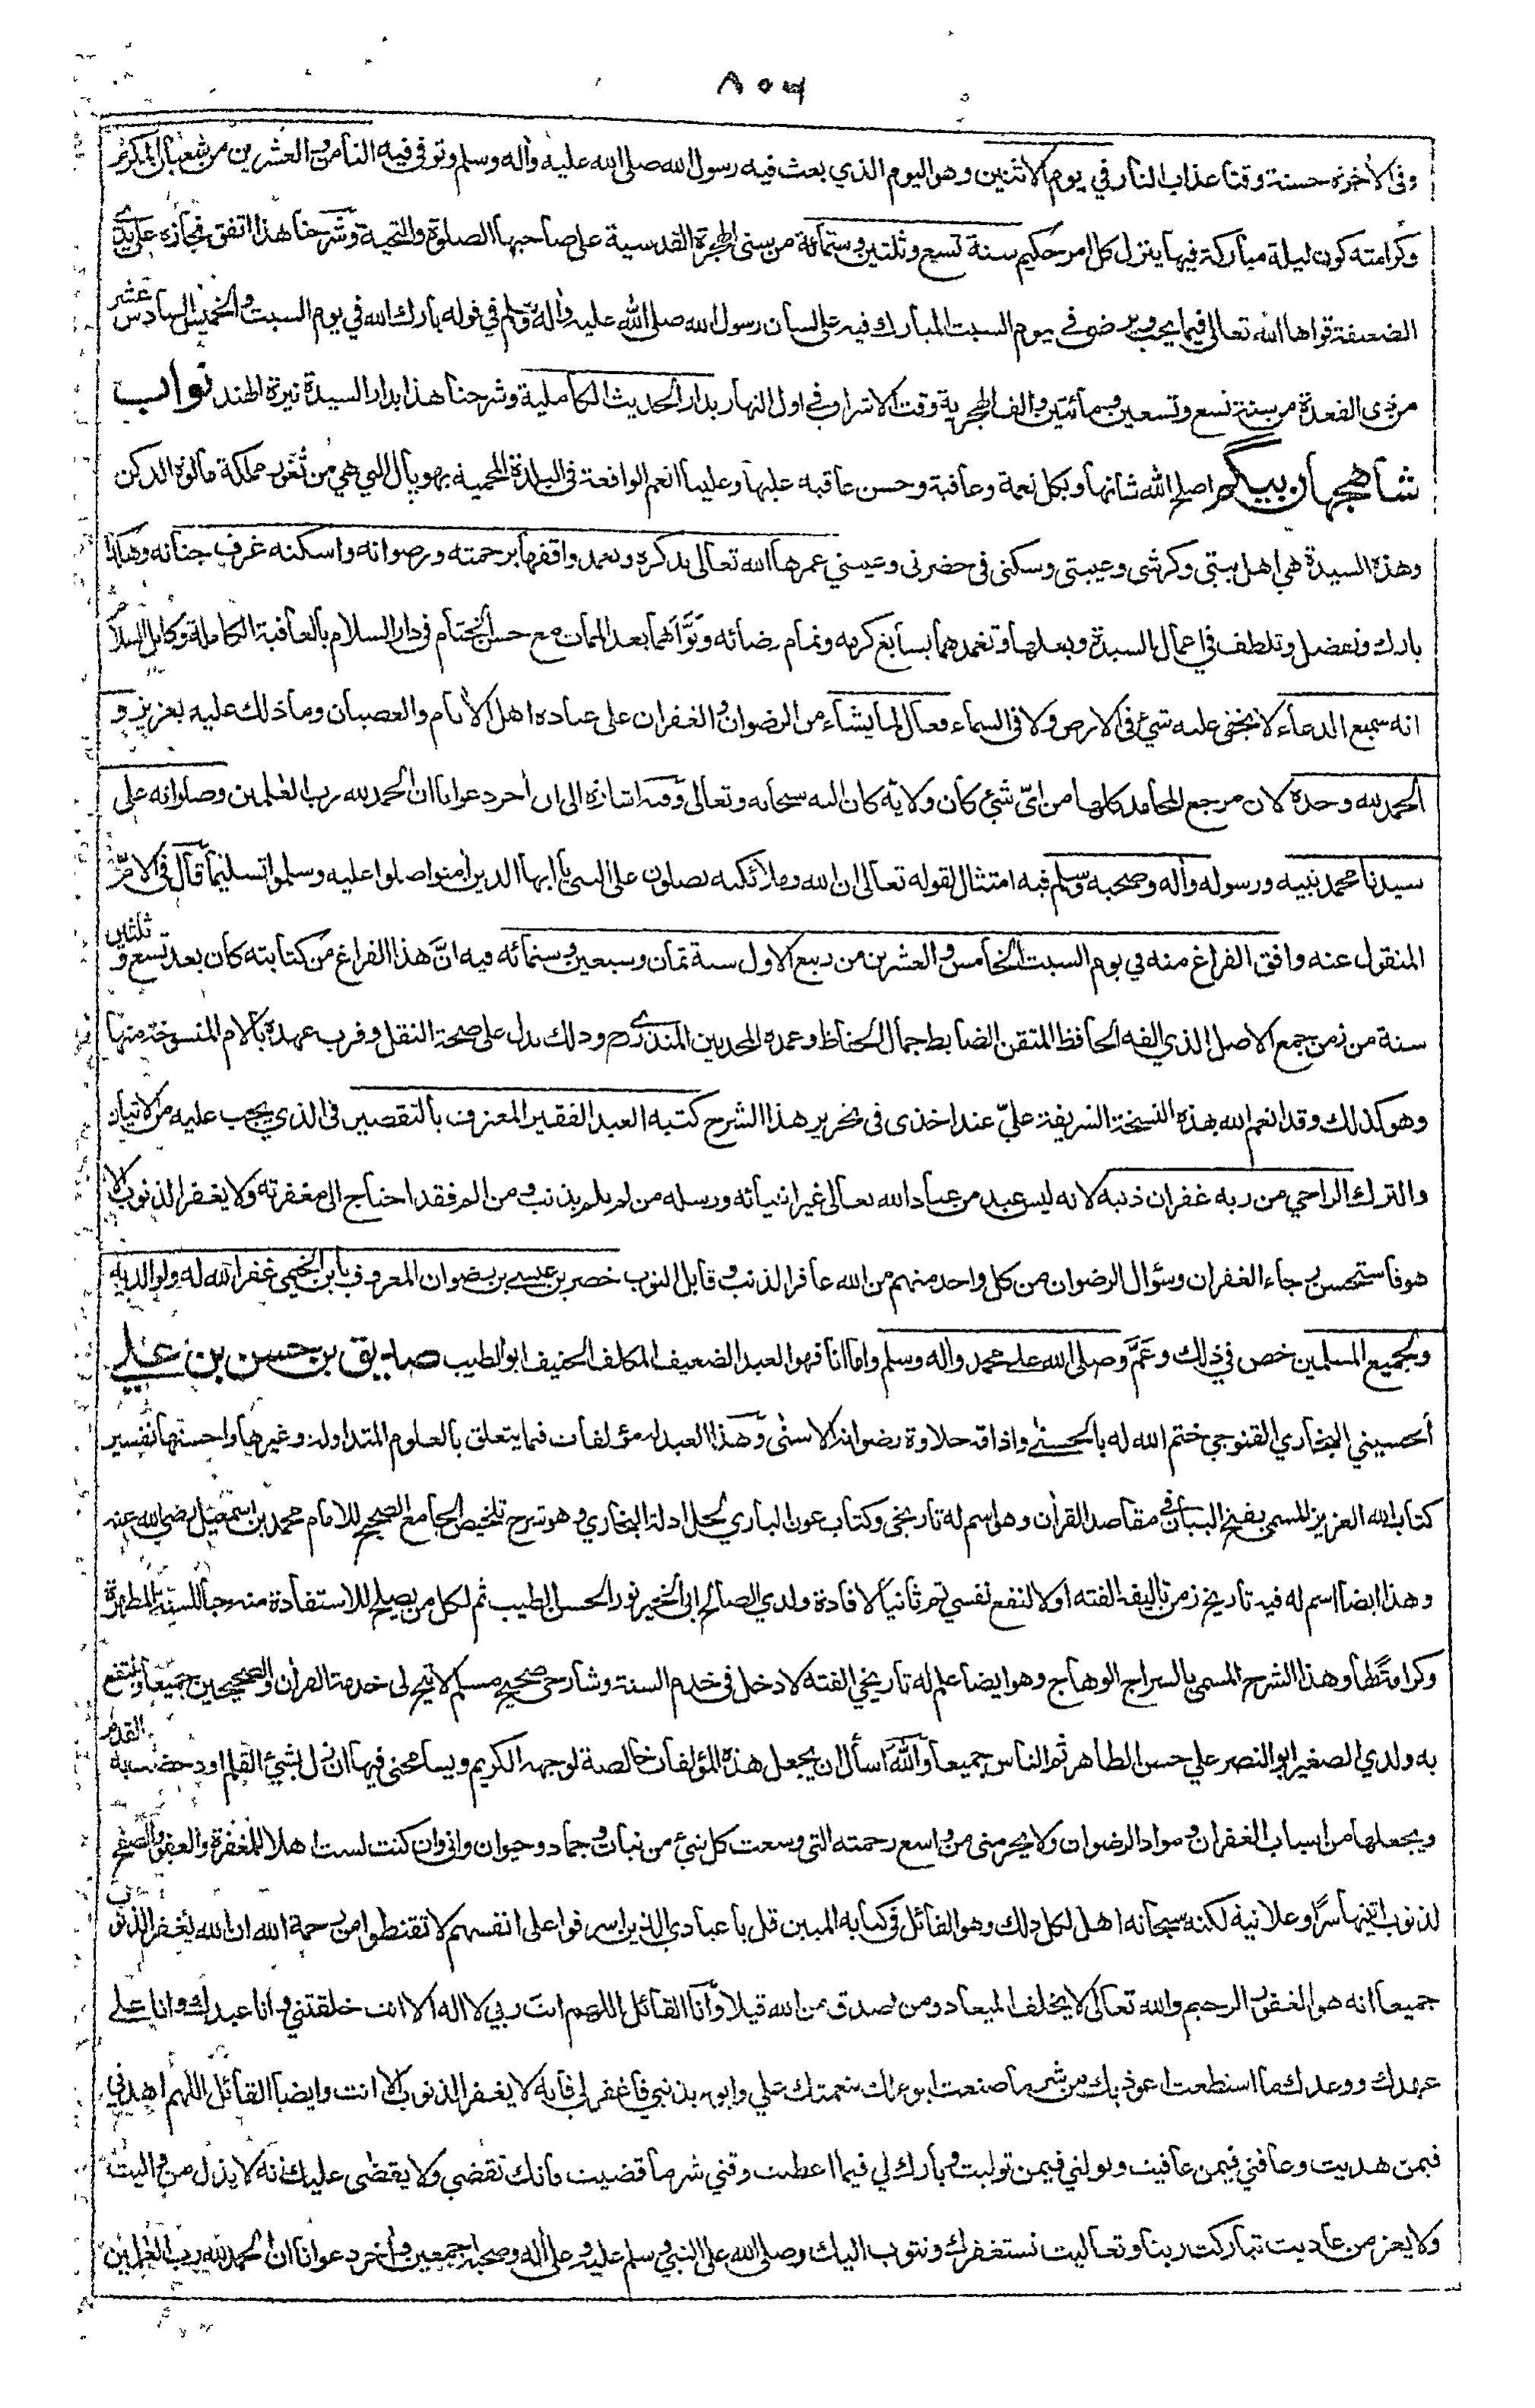 ٨٥٦
وفى الأخرة حسنة وقنا عذاب النار في يوم الاثنين وهو اليوم الذي بعث فيه رسول الله صلى الله عليه وأله وسلم وتوفى فيه الثامن والعشرين من شعبان المكرم
وكرامته كون ليلة مباركة فيها ينزل كل امر حكيم سنة تسع وثلثين وستمائة من سنى الهجرة القدسية على صاحبها الصلوة والتحية وشرحنا هذا اتفق نجازه على يدى
الضعيفة قواها الله تعالى فيما يحب ويرضى في يوم السبت المبارك فيه على لسان رسول الله صلى الله عليه وأله وسلم في قوله بارك الله في يوم السبت والخميس السادس عشر
من ذى القعدة من سنة تسع وتسعين ومائتين والف الهجرية وقت الاشراق في اول النهار بدار الحديث الكاملية وشرحنا هذا بدار السيدة نيرة الهند نواب
شاهجهان بيگم اصلح الله شانها وبكل نعمة وعافية وحسن عاقبه عليها وعلينا انعم الواقعة في البلدة المحمية بهوپال التي هي من ثغور مملكة مالوة الدكن
وهذه السيدة هي اهل بيتي وكرشى وعيبتى وسكنى فى حضرنى وعيبتي عمرها الله تعالى بذكره وتغمد واقفها برحمته ورضوانه واسكنه غرف جنانه وهكذا
بارك وتفضل وتلطف في اعمال السيدة وبعلها وتغمدهما بسابغ كرمه وتمام رضائه وبَوَّأهما بعد الممات مع حسن الختام في دار السلام بالعافية الكاملة وكامل السلام
انه سميع الدعاء لا يخفى عليه شيء فى الارض ولا فى السماء فعال لما يشاء من الرضوان والغفران على عباده اهل الأثام والعصيان وما ذلك عليه بعزيز و
الحمد لله وحده لان مرجع المحامد كلها من اىّ شيء كان ولاية كان اليه سبحانه وتعالى وفيه اشارة الى ان أخر دعوانا ان الحمد لله رب العلمين وصلوانه على
سيدنا محمد نبيه ورسوله وأله وصحبه وسلم فيه امتثال لقوله تعالى ان الله وملائكته يصلون على النبي يا ايها الذين أمنوا صلوا عليه وسلموا تسليما قال فى الام
المنقول عنه وافق الفراغ منه في يوم السبت الخامس والعشرين من ربيع الاول سنة ثمان وسبعين وستمائه فيه انَّ هذا الفراغ من كتابته كان بعد تسع وثلثين
سنة من زمن جمع الاصل الذي الفه الحافظ المتقن الضابط جمال الحفاظ وعمدة المحدثين المنذرى رح وذلك يدل على صحة النقل وقرب عهده بالام المنسوخة منها
وهو كذلك وقد انعم الله بهذه النسخة الشريفة عليّ عند اخذى فى تحرير هذا الشرح كتبه العبد الفقير المعترف بالتقصير فى الذي يجب عليه من الاتيان
والترك الراجي من ربه غفران ذنبه لانه ليس عبد من عباد الله تعالى غير انبيائه ورسله من لم يلم بذنب ومن الم فقد احتاج الى مغفرته ولا يغفر الذنوب الا
هو فاستحسن رجاء الغفران وسؤال الرضوان من كل واحد منهم من الله غافر الذنب وقابل التوب خضر بن عيسى بن رضوان المعروف بابن الخيمي غفر الله له ولوالديه
ولجميع المسلمين خص في ذلك وعَمَّ وصلى الله على محمد واله وسلم واما انا فهو العبد الضعيف المكلف الحنيف ابو الطيب صديق بن حسن بن علي
الحسيني البخاري القنوجي ختم الله له بالحسنى واذاقه حلاوة رضوانه الاسنى وهذا العبد له مؤلفات فيما يتعلق بالعلوم المتداولة وغيرها واحسنها تفسير
كتاب الله العزيز المسمى بفتح البيان فى مقاصد القرأن وهو اسم له تاريخي وكتاب عون الباري لحل ادلة البخاري وهو شرح تلخيص الجامع الصحيح للامام محمد بن اسمعيل رضي الله عنه
وهذا ايضا اسم له فيه تاريخ زمن تاليفه الفته اولا لنفع نفسي ثم ثانيا لافادة ولدي الصالح ابى الخير نور الحسن الطيب ثم لكل من يصلح للاستفادة منه حبا للسنة المطهرة
وكرامة لها وهذا الشرح المسمى بالسراج الوهاج وهو ايضا علم له تاريخي الفته لادخل فى خدم السنة وشارحى صحيح مسلم لا تيح لى خدمة القرأن والصحيحين جميعا وينتفع
به ولدي الصغير ابو النصر علي حسن الطاهر ثم الناس جميعا والله اسأل ان يجعل هذه المؤلفات خالصة لوجهه الكريم ويسامحنى فيها ان زل بشيء القلم او دحضت به القدم
ويجعلها من اسباب الغفران ومواد الرضوان ولا يحرمنى من واسع رحمته التى وسعت كل شيء من نبات وجماد وحيوان وانى وان كنت لست اهلا للمغفرة والعفو والصفح
لذنوب اتيتها سرًا وعلانية لكنه سبحانه اهل لكل ذلك وهو القائل فى كتابه المبين قل يا عبادي الذين اسرفوا على انفسهم لا تقنطوا من رحمة الله ان الله يغفر الذنوب
جميعا انه هو الغفور الرحيم والله تعالى لا يخلف الميعاد ومن اصدق من الله قيلا وأنا القائل اللهم انت ربي لا اله الا انت خلقتني وانا عبدك وانا على
عهدك ووعدك ما استطعت اعوذ بك من شر ما صنعت ابوء لك بنعمتك علي وابوء بذنبي فاغفر لى فانه لا يغفر الذنوب الا انت وايضا القائل اللهم اهدني
فيمن هديت وعافني فيمن عافيت وتولني فيمن توليت وبارك لي فيما اعطيت وقني شر ما قضيت فانك تقضي ولا يقضى عليك انه لا يذل من واليت
ولا يعز من عاديت تباركت ربنا وتعاليت نستغفرك ونتوب اليك وصلى الله على النبي وسلم عليه وعلى أله وصحبه اجمعين وأخر دعوانا ان الحمد لله رب العلمين